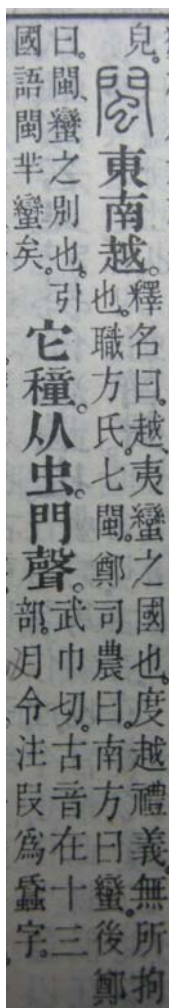 皃。
閩東南越。
釋名曰。越、夷蠻之國也。度越禮義。無所拘
也。職方氏七閩。鄭司農曰。南方曰蠻。後鄭
曰。閩、蠻之別也。引
國語閩芈蠻矣。
它穜。从虫。門聲。
武巾切。古音在十三
部。月令注叚爲蟁字。